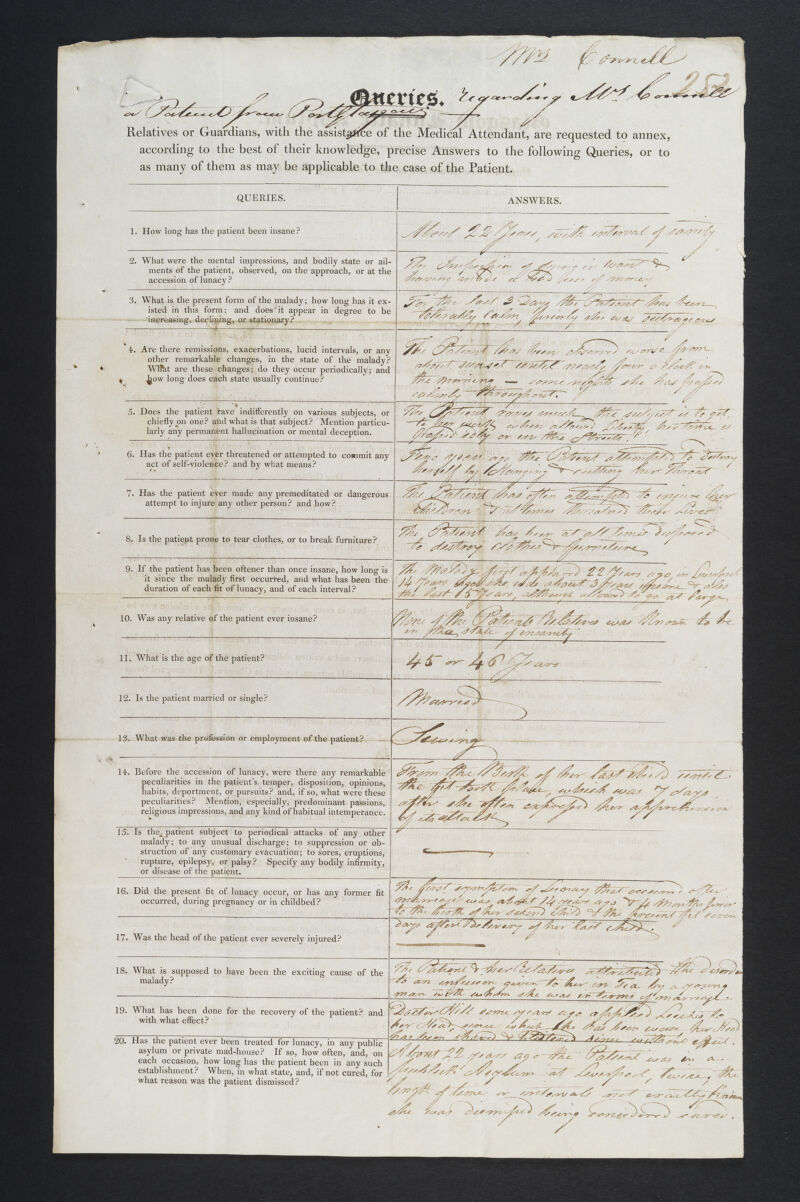 Mrs Connell
252
Queries. regarding Mrs Connell
a Patient from Port Glasgow
Relatives or Guardians, with the assistance of the Medical Attendant, are requested to annex,
according to the best of their knowledge, precise Answers to the following Queries, or to
as many of them as may be applicable to the case of the Patient.
QUERIES.
ANSWERS.
1. How long has the patient been insane?
About 22 Years, with interval of sanity
2. What were the mental impressions, and bodily state or ail-
ments of the patient, observed, on the approach, or at the
accession of lunacy?
The Impression of being in want &
having made a bad use of money
3. What is the present form of the malady; how long has it ex-
isted in this form; and does it appear in degree to be
increasing, declining, or stationary?
For the last 3 Days the Patient has been
tolerably calm, formerly she was outrageous
4. Are there remissions, exacerbations, lucid intervals, or any
other remarkable changes, in the state of the malady?
What are these changes; do they occur periodically; and
how long does each state usually continue?
The Patient has been observed worse from
about sunset until nearly four o'clock in
the morning — some nights she has passed
calmly throughout.
5. Does the patient rave indifferently on various subjects, or
chiefly on one? and what is that subject? Mention particu-
larly any permanent hallucination or mental deception.
The Patient raves much, the subject is to get
to her work when allowed liberty, her time is
passed idly or on the Streets.
6. Has the patient ever threatened or attempted to commit any
act of self-violence? and by what means?
Two years ago the Patient attempted to destroy
herself by Hanging & cutting her Throat
7. Has the patient ever made any premeditated or dangerous
attempt to injure any other person? and how?
The Patient has often attempted to injure her
Children & at times threatened their Lives
8. Is the patient prone to tear clothes, or to break furniture?
The Patient has been at all times disposed
to destroy clothes & furniture
9. If the patient has been oftener than once insane, how long is
it since the malady first occurred, and what has been the
duration of each fit of lunacy, and of each interval?
The Malady first appeared 22 Years ago, in Liverpool
14 Years ago she was about 3 years insane & also
the last 5 Years, although allowed to go at large
10. Was any relative of the patient ever insane?
None of the Patients Relatives was known to be
in the state of insanity
11. What is the age of the patient?
45 or 46 Years
12. Is the patient married or single?
Married
13. What was the profession or employment of the patient?
Sewing
14. Before the accession of lunacy, were there any remarkable
peculiarities in the patient's temper, disposition, opinions,
habits, deportment, or pursuits? and, if so, what were these
peculiarities? Mention, especially, predominant passions,
religious impressions, and any kind of habitual intemperance.
From the Birth of her last child until
the fit took place, which was 7 days
after she often expressed her apprehension
of its attack
15. Is the patient subject to periodical attacks of any other
malady; to any unusual discharge; to suppression or ob-
struction of any customary evacuation; to sores, eruptions,
rupture, epilepsy, or palsy? Specify any bodily infirmity,
or disease of the patient.
16. Did the present fit of lunacy occur, or has any former fit
occurred, during pregnancy or in childbed?
The first symptom of Lunacy that occurred after
marriage was about 14 years ago & 4 Months prior
to the birth of her second child & the present fit seven
days after Delivery of her last child.
17. Was the head of the patient ever severely injured?
18. What is supposed to have been the exciting cause of the
malady?
The Patient & her Relatives attributed the disorder
to an infusion given to her in Tea by a young
man with whom she was in terms of marriage.
19. What has been done for the recovery of the patient? and
with what effect?
Doctor Hill some years ago applied Leeches to
her Head, since which she has been worse her Head
has been shaved & Blistered since without effect.
20. Has the patient ever been treated for lunacy, in any public
asylum or private mad-house? If so, how often, and, on
each occasion, how long has the patient been in any such
establishment? When, in what state, and, if not cured, for
what reason was the patient dismissed?
About 22 years ago the Patient was in a
publick Asylum at Liverpool, twice, the
length of time or intervals not exactly known
she was dismissed being considered cured.